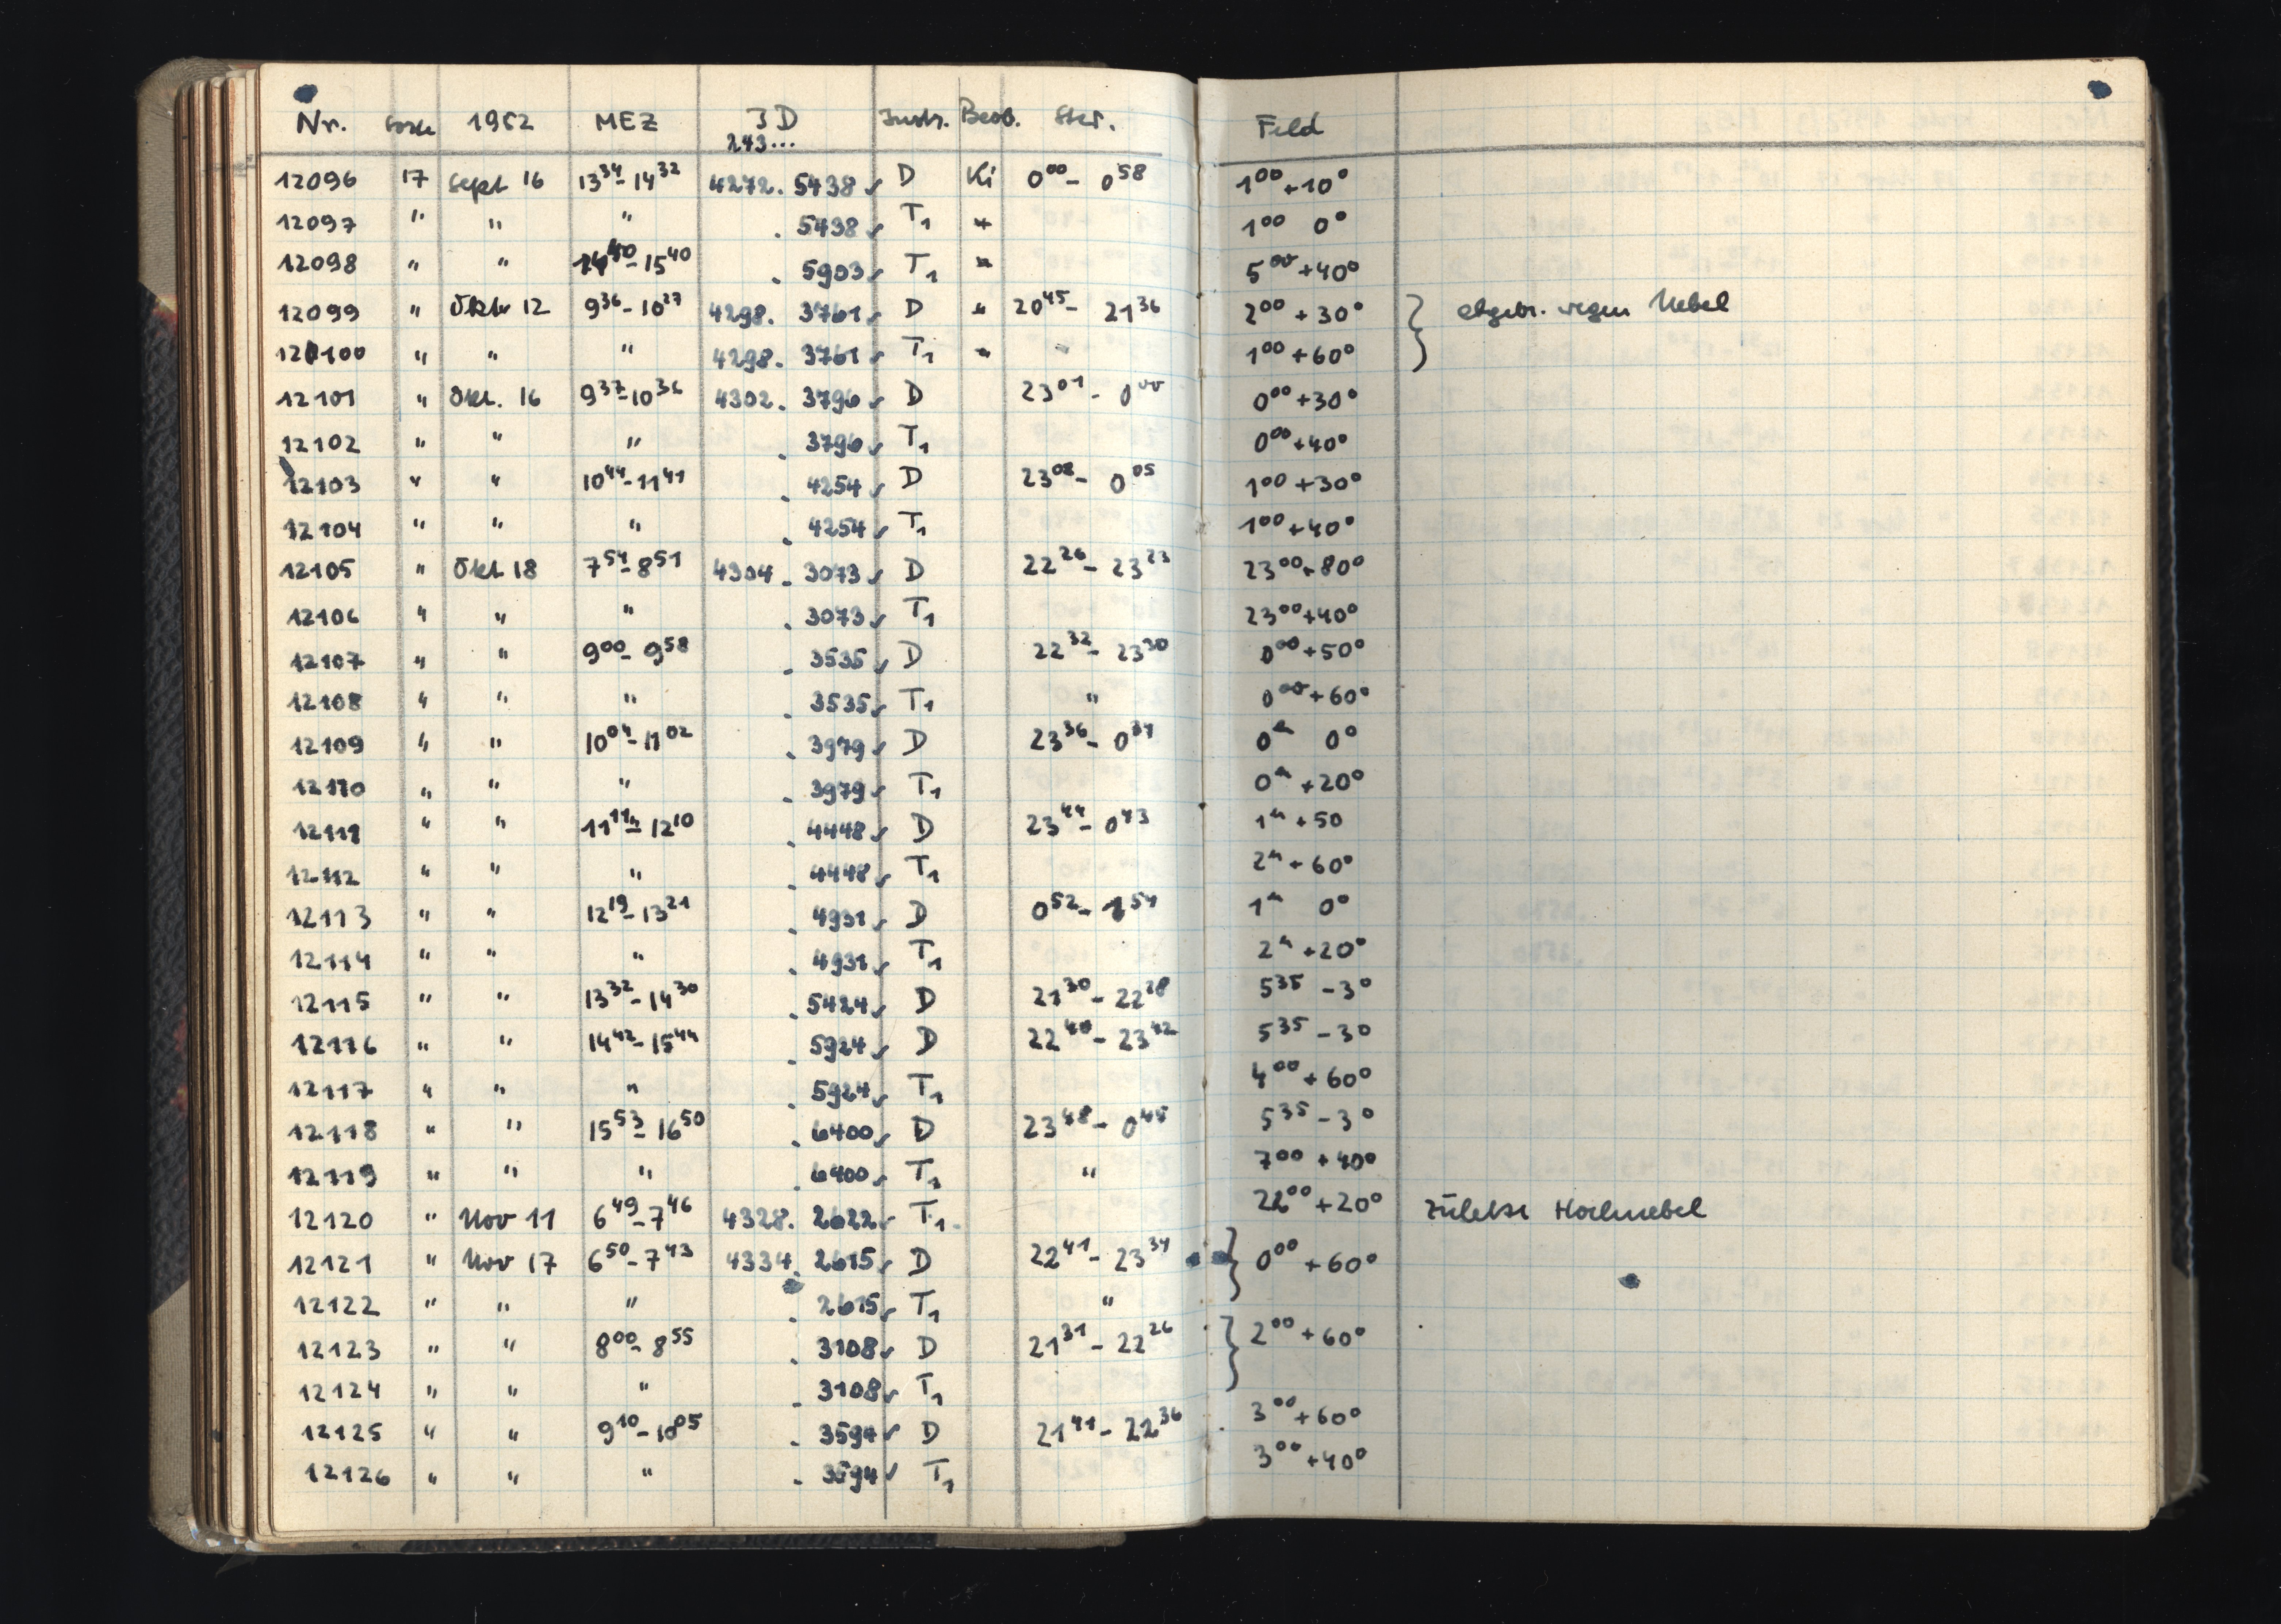 Nr. Sorte 1952 MEZ JD Instr. Beob. Ster. Feld
243...
12096 17 Sept 16 13³⁴-14³² 4272. 5438 ✓ D Ki 0⁰⁰- 0⁵⁸ 1⁰⁰+10°
12097 " " " . 5438 ✓ T₁ " 1⁰⁰ 0°
12098 " " 14⁴⁰-15⁴⁰ . 5903 ✓ T₁ " 5⁰⁰+40°
12099 " Okt 12 9³⁶-10²⁷ 4298. 3761 ✓ D " 20⁴⁵- 21³⁶ 2⁰⁰+30° } abgebr. wegen Nebel
12100 " " " 4298. 3761 ✓ T₁ " " 1⁰⁰+60°
12101 " Okt. 16 9³⁷-10³⁶ 4302. 3796 ✓ D 23⁰¹- 0⁰⁰ 0⁰⁰+30°
12102 " " " . 3796 ✓ T₁ 0⁰⁰+40°
12103 " " 10⁴⁴-11⁴¹ . 4254 ✓ D 23⁰⁸- 0⁰⁵ 1⁰⁰+30°
12104 " " " . 4254 ✓ T₁ 1⁰⁰+40°
12105 " Okt 18 7⁵⁴-8⁵¹ 4304. 3073 ✓ D 22²⁶- 23²³ 23⁰⁰+80°
12106 " " " . 3073 ✓ T₁ 23⁰⁰+40°
12107 " " 9⁰⁰-9⁵⁸ . 3535 ✓ D 22³²- 23³⁰ 0⁰⁰+50°
12108 " " " . 3535 ✓ T₁ " 0⁰⁰+60°
12109 " " 10⁰⁴-11⁰² . 3979 ✓ D 23³⁶- 0³⁴ 0ʰ 0°
12110 " " " . 3979 ✓ T₁ 0ʰ +20°
12111 " " 11¹¹-12¹⁰ . 4448 ✓ D 23⁴⁴- 0⁴³ 1ʰ +50
12112 " " " . 4448 ✓ T₁ 2ʰ +60°
12113 " " 12¹⁹-13²¹ . 4931 ✓ D 0⁵²- 1⁵⁴ 1ʰ 0°
12114 " " " . 4931 ✓ T₁ 2ʰ +20°
12115 " " 13³²-14³⁰ . 5424 ✓ D 21³⁰- 22²⁸ 5³⁵ -3°
12116 " " 14⁴²-15⁴⁴ . 5924 ✓ D 22⁴⁰- 23⁴² 5³⁵ -3°
12117 " " " . 5924 ✓ T₁ 4⁰⁰+60°
12118 " " 15⁵³-16⁵⁰ . 6400 ✓ D 23⁴⁸- 0⁴⁵ 5³⁵ -3°
12119 " " " . 6400 ✓ T₁ " 7⁰⁰ +40°
12120 " Nov 11 6⁴⁹-7⁴⁶ 4328. 2622 ✓ T₁ 22⁰⁰+20° zuletzt Hochnebel
12121 " Nov 17 6⁵⁰-7⁴³ 4334. 2615 ✓ D 22⁴¹- 23³⁴ } 0⁰⁰ +60°
12122 " " " . 2615 ✓ T₁ "
12123 " " 8⁰⁰-8⁵⁵ . 3108 ✓ D 21³¹- 22²⁶ } 2⁰⁰+60°
12124 " " " . 3108 ✓ T₁
12125 " " 9¹⁰-10⁰⁵ . 3594 ✓ D 21⁴¹- 22³⁶ 3⁰⁰+60°
12126 " " " . 3594 ✓ T₁ 3⁰⁰+40°